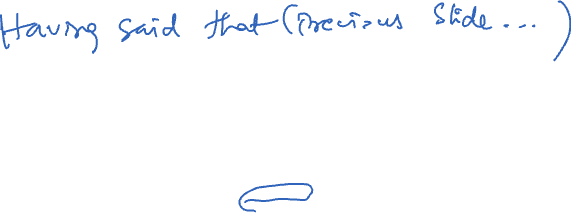 Having said that (Previous Slide...)